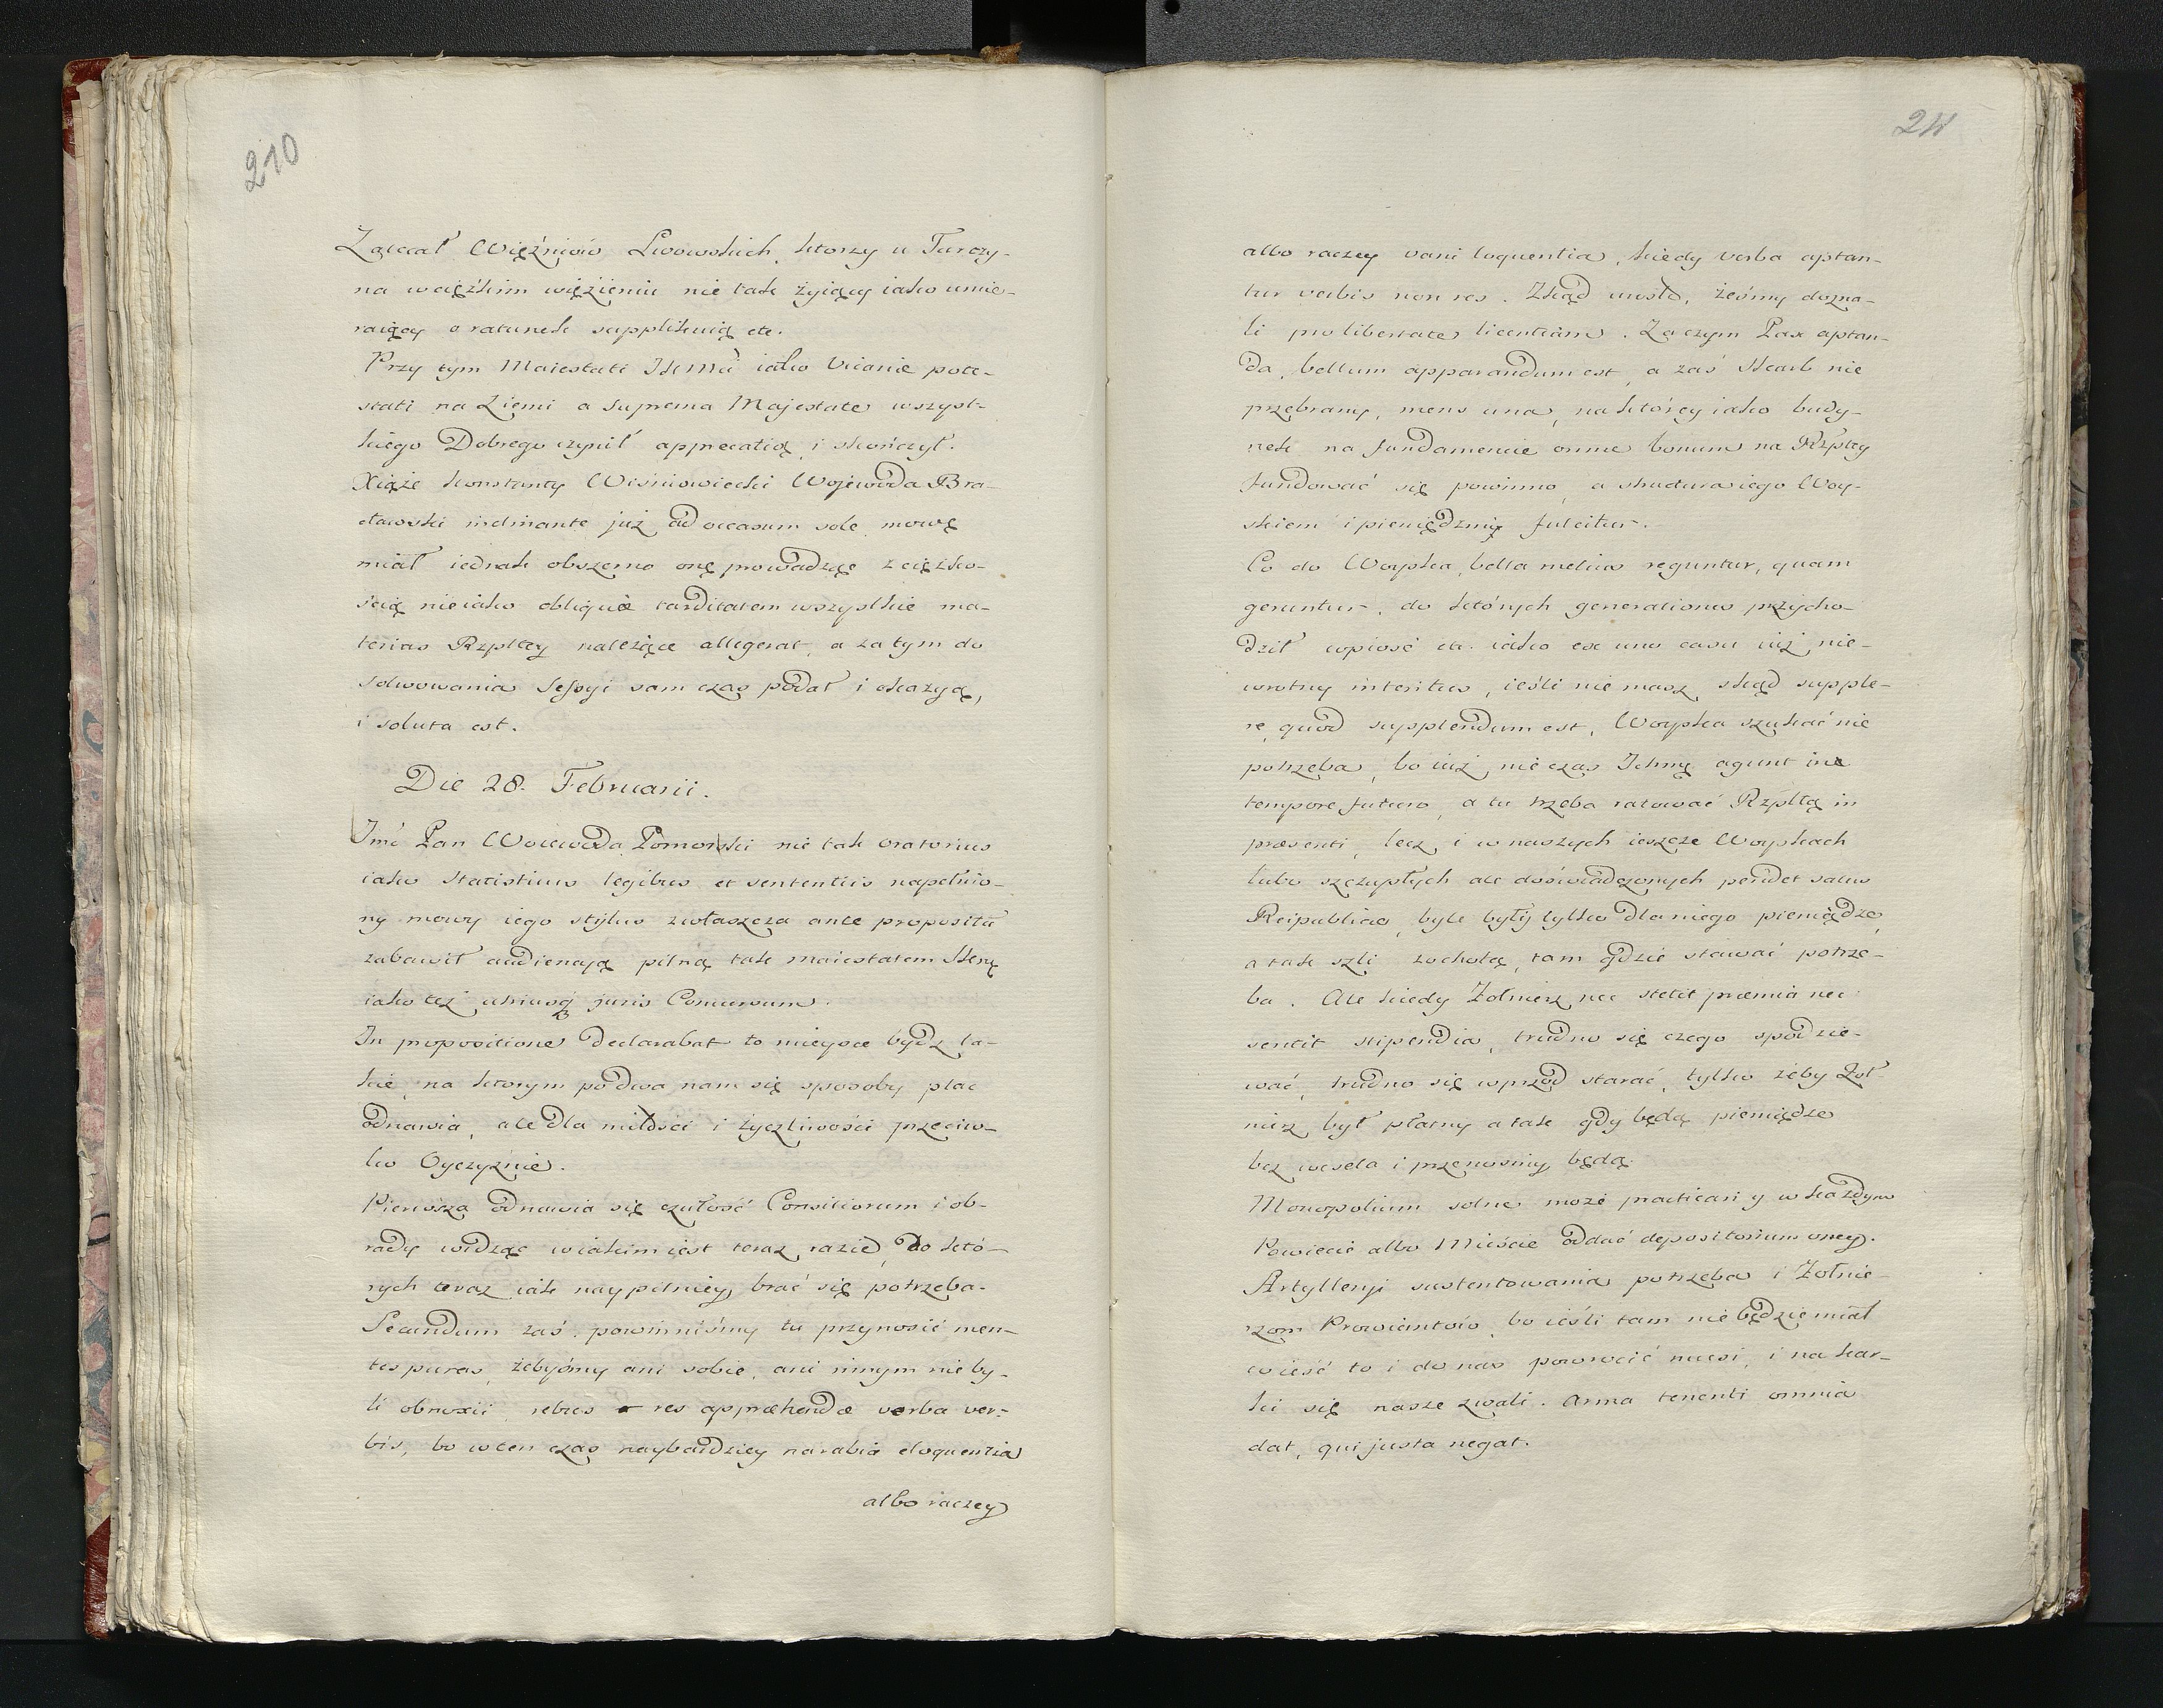 210
Zalecał Więźniów Lwowskich, ktorzy u Turczy-
na w cięźkim więzieniu nie tak żyiący iako umie-
raiący o ratunek supplikuią etc.
Przy tym Maiestati JKMci iako Vicariæ pote-
stati na Ziemi a Suprema Majestate wszyst-
kiego Dobrego czynił apprecatią, i skończył.
Xiąże Konstanty Wiśniowiecki Wojewoda Bra-
cławski inclinante już ad occasum sole mowę
miał iednak obszerno onę prowadząc z cięzko-
ścią nieiako obliquè tarditatem wszystkie ma-
terias Rzpltey należące allegerat, a za tym do
solwowania Sessyi sam czas podał i okazyą,
i soluta est.
Die 28. Februarii.
Jmć Pan Woiewoda Pomorski nie tak oratorius
iako Statistius legibus et sententiis napełnio-
ny mowy iego stylus zwłaszcza ante propositũ
zabawił audiencyą pilną tak maiestatem
iako też utriusq juris Concursum.
In propositione declarabat to mieysce bydz ta-
kie, na ktorym podwa nam się sposoby plac
odnawia, ale dla miłości i życzliwości przeciw-
ko Oyczyznie.
Pierwsza odnawia się czułość Consiliorum i ob-
rady widząc w iakim iest teraz razie, Do któ-
rych teraz iak naypilniey brać się potrzeba.
Secundum zaś powinniśmy tu przynosić men-
tes puras, żebyśmy ani sobie, ani innym nie by-
li obnoxii, rebus res apprehendæ verba ver-
bis, bo w ten czas naybardziey narabia eloquentia
albo raczey
211
albo raczey vani loquentia, kiedy verba aptan-
tur verbis non res. Zkąd urosło, żeśmy dozna-
li pro libertate licentiam. Za czym Pax aptan-
da, bellum apparandum est, a zaś Skarb nie
przebrany, mens una, na którey iako budy-
nek na fundamencie omne bonum na Rzpltey
fundować się powinno, a structura iego Woy-
skiem i pieniędzmi fulcitur.
Co do Woyska, bella melius reguntur, quam
geruntur, do których generationes przycho-
dził wpiość etc. iako ex uno casu iuż nie-
wrotny interitus, ieśli nie masz, skąd supple-
re, quod supplendum est, Woyska szukać nie
potrzeba, bo iuż nie czas Ichmę agunt in
tempore futuro, a tu trzeba ratować Rzpltą in
præsenti, lecz i w naszych ieszcze Woyskach
lubo szczupłych ale doświadczonych pendet salus
Reipublicæ, byle były tylko dla niego pieniądze,
a tak szli zochotą, tam gdzie stawać potrze-
ba. Ale kiedy Żołnierz nec stetit præmia nec
sentit stipendia, trudno się czego spodzie-
wać, trudno się wprzod starać, tylko żeby Żoł
nierz był płatny a tak gdy będą pieniądze
bez wesela i przenosiny będą.
Monopolium solne może practicari y w każdym
Powiecie albo Mieście oddać depositorium oney.
Artylleryi sustentowania potrzeba i Żołnie-
rzom Prowiantów, bo ieśli tam nie będzie miał
co ieść to i do nas powrocić musi, i na kar-
ki się nasze zwali. Arma tenenti omnia
dat, qui justa negat.